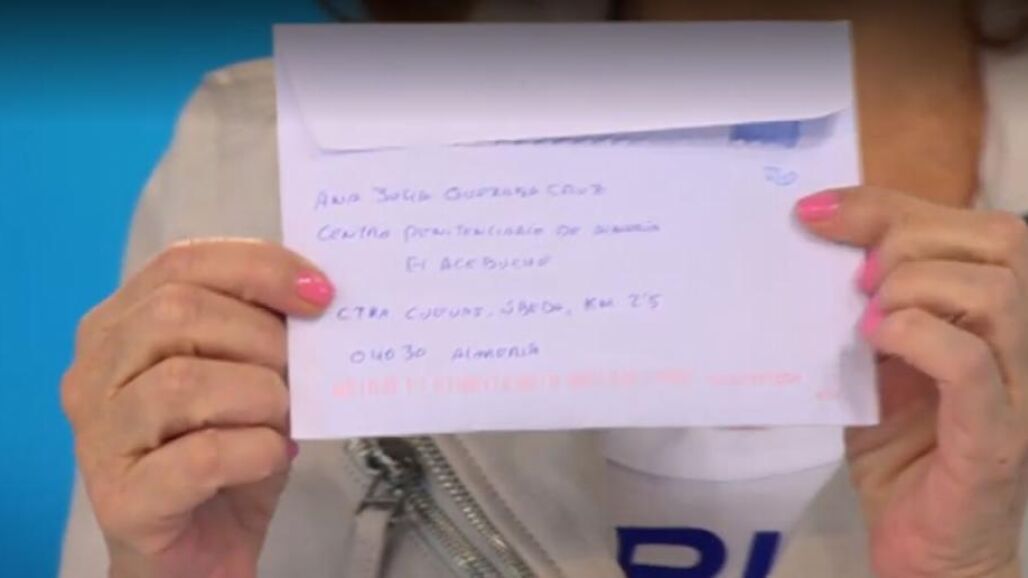 ANA JULIA QUEZADA CRUZ
CENTRO PENITENCIARIO DE ALMERÍA
El ACEBUCHE
CTRA CUEVAS, ÚBEDA, KM 2'5
04030 ALMERÍA